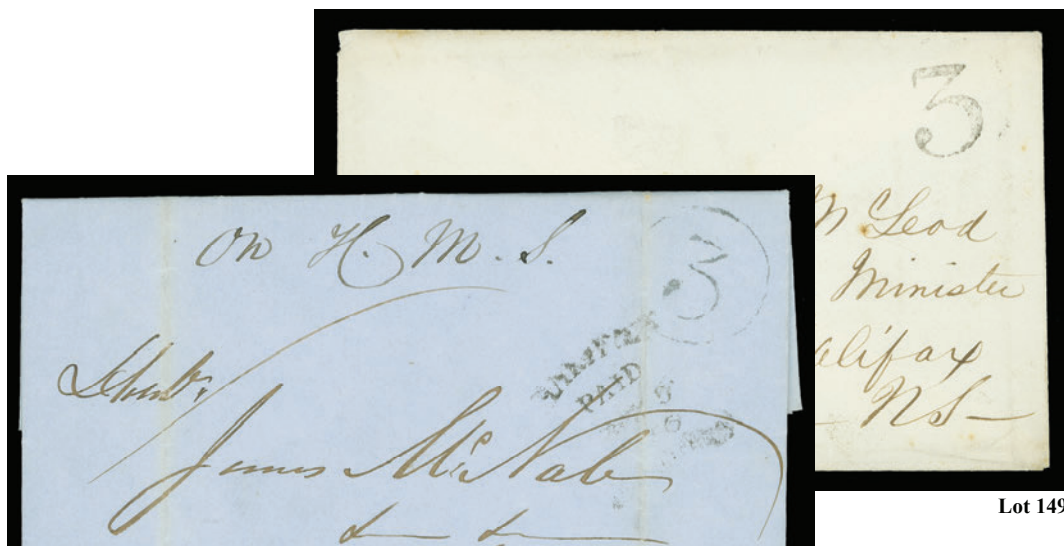 3
McLeod
Minister
alifax
NS
On H. M. S.
3
PAID
James McNab
Lot 149